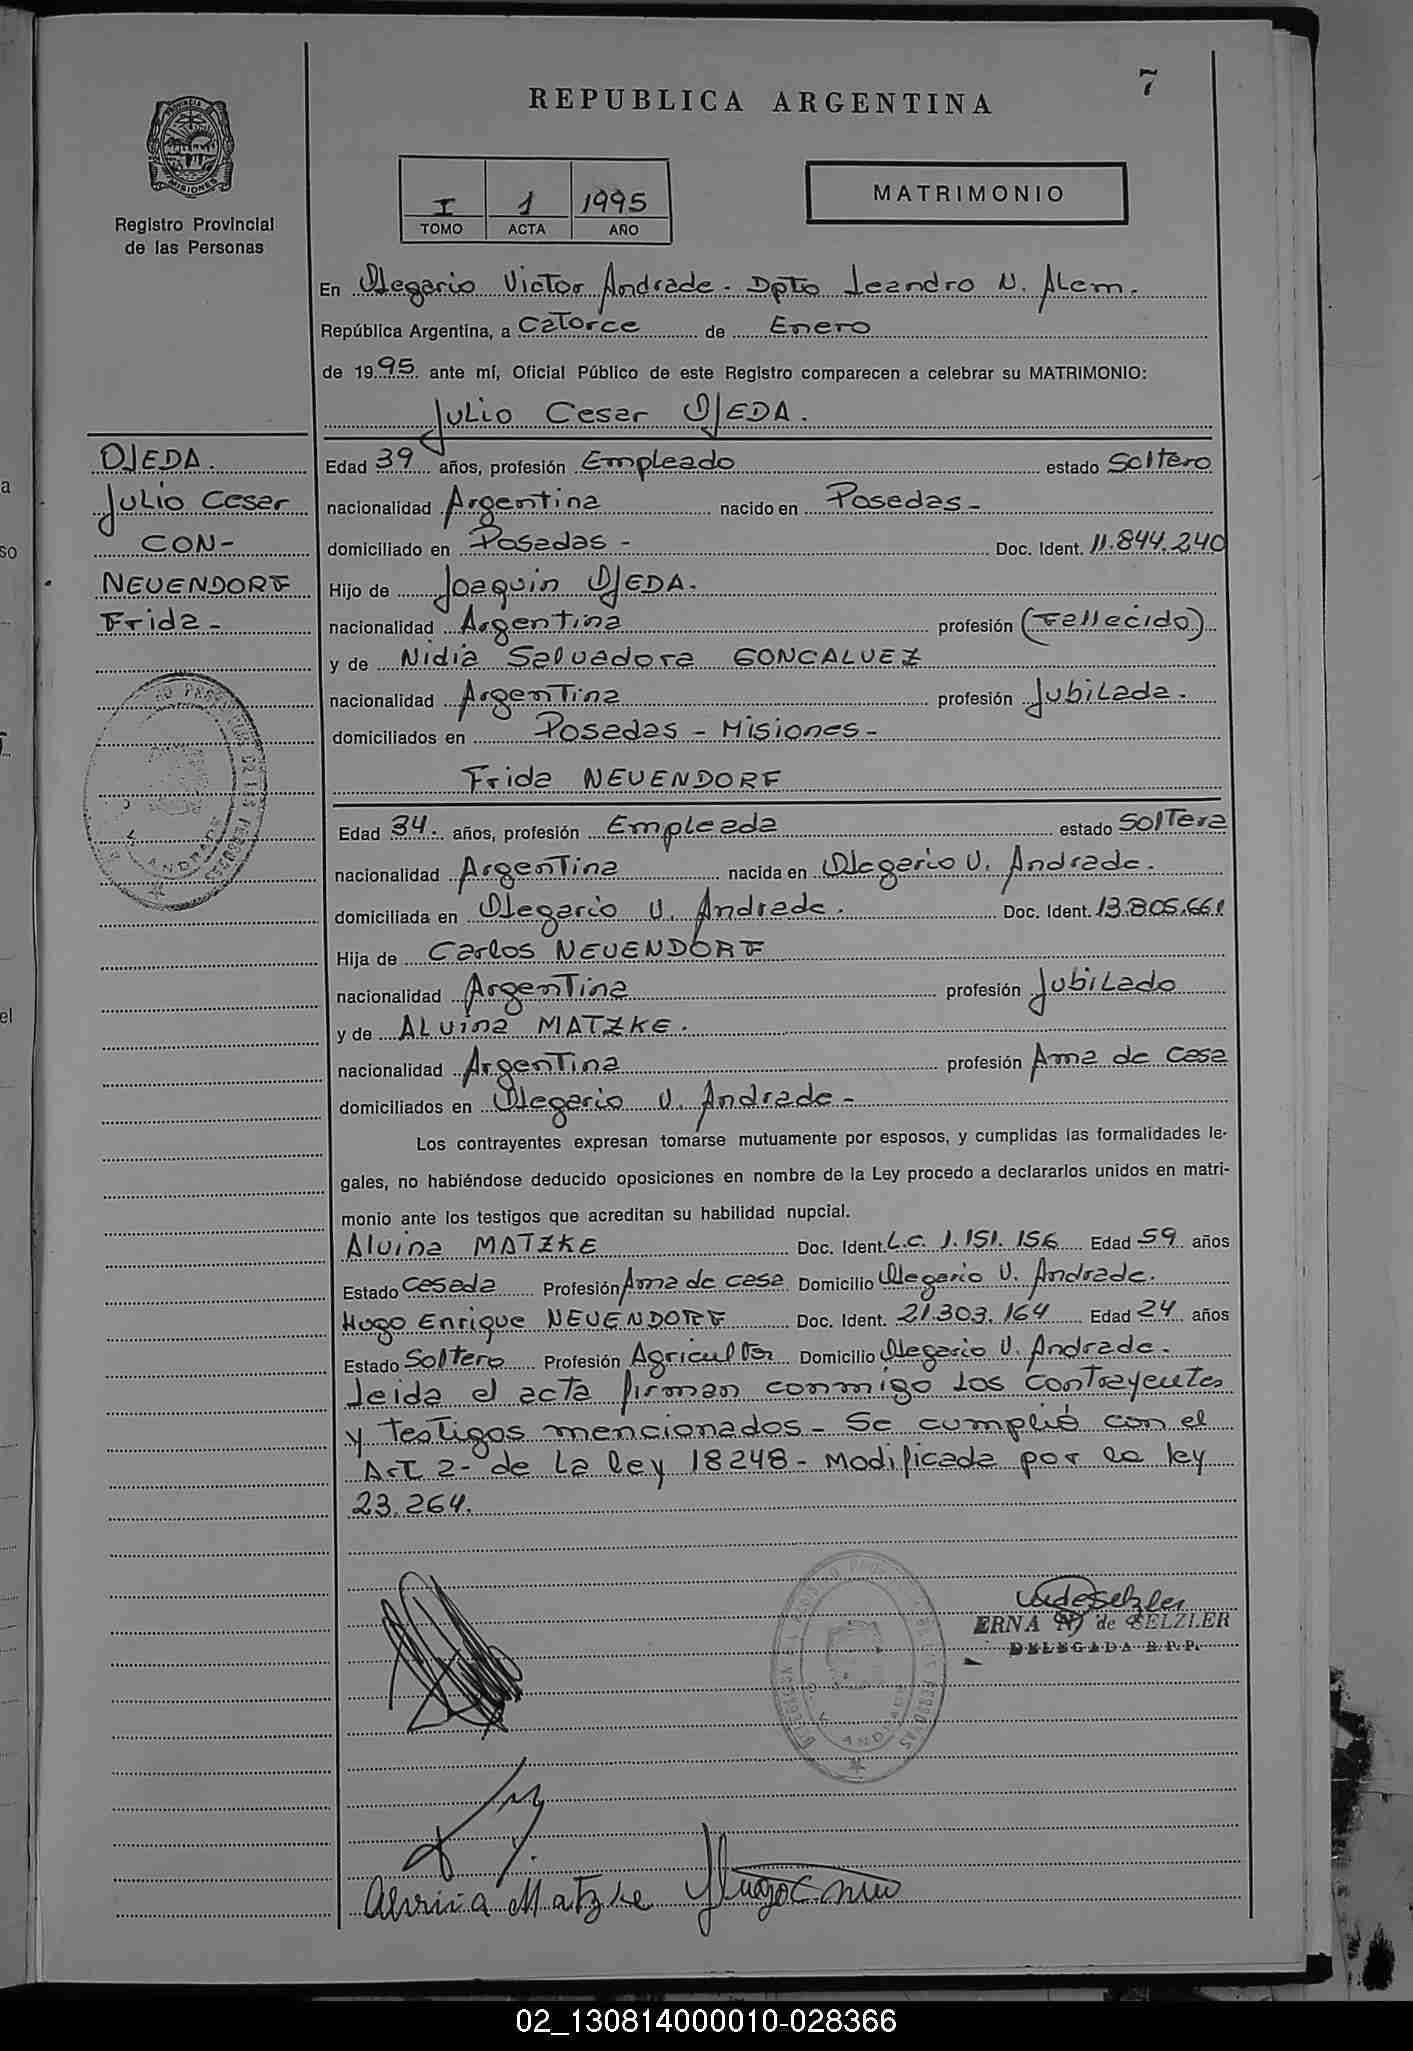 7
REPUBLICA ARGENTINA
PROVINCIA DE
MISIONES
Registro Provincial
de las Personas
I 1 1995
TOMO ACTA AÑO
MATRIMONIO
En Olegario Victor Andrade. Dpto Leandro N. Alem.
República Argentina, a Catorce de Enero
de 1995 ante mí, Oficial Público de este Registro comparecen a celebrar su MATRIMONIO:
Julio Cesar OJEDA.
OJEDA.
Julio Cesar
CON-
NEUENDORF
Frida -
Edad 39 años, profesión Empleado estado Soltero
nacionalidad Argentina nacido en Posadas -
domiciliado en Posadas - Doc. Ident. 11.844.240
Hijo de Joaquin OJEDA.
nacionalidad Argentina profesión (Fallecido)
y de Nidia Salvadora GONCALVEZ
nacionalidad Argentina profesión Jubilada.
domiciliados en Posadas - Misiones -
Frida NEUENDORF
Edad 34. años, profesión Empleada estado Soltera
nacionalidad Argentina nacida en Olegario V. Andrade.
domiciliada en Olegario V. Andrade. Doc. Ident. 13.805.661
Hija de Carlos NEUENDORF
nacionalidad Argentina profesión Jubilado
y de ALvina MATZKE.
nacionalidad Argentina profesión Ama de casa
domiciliados en Olegario V. Andrade -
Los contrayentes expresan tomarse mutuamente por esposos, y cumplidas las formalidades le-
gales, no habiéndose deducido oposiciones en nombre de la Ley procedo a declararlos unidos en matri-
monio ante los testigos que acreditan su habilidad nupcial.
Alvina MATZKE Doc. Ident. L.C. 1.151.156 Edad 59 años
Estado Casada Profesión Ama de casa Domicilio Olegario V. Andrade.
Hugo Enrique NEUENDORF Doc. Ident. 21.303.164 Edad 24 años
Estado Soltero Profesión Agricultor Domicilio Olegario V. Andrade.
Leida el acta firman conmigo los contrayentes
y testigos mencionados - Se cumplió con el
Art 2- de la ley 18248 - Modificada por la ley
23.264.
ERNA N. de SELZLER
DELEGADA R.P.P.
V. ANDRADE
Alvina Matzke
02_130814000010-028366